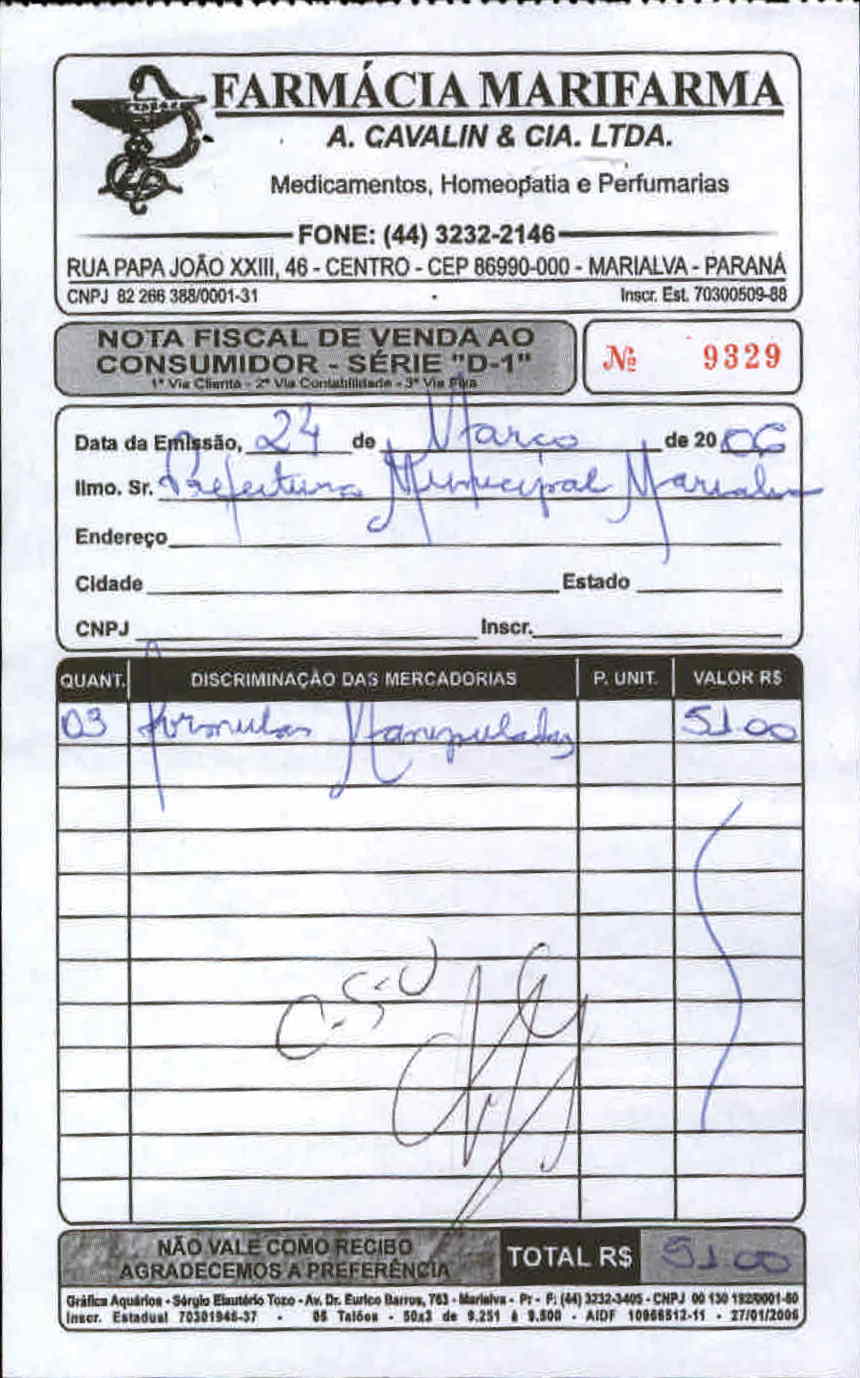 FARMÁCIA MARIFARMA
A. CAVALIN & CIA. LTDA.
Medicamentos, Homeopatia e Perfumarias
FONE: (44) 3232-2146
RUA PAPA JOÃO XXIII, 46 - CENTRO - CEP 86990-000 - MARIALVA - PARANÁ
CNPJ 82 266 388/0001-31 Inscr. Est. 70300509-88
NOTA FISCAL DE VENDA AO
CONSUMIDOR - SÉRIE "D-1"
1ª Via Cliente - 2ª Via Contabilidade - 3ª Via Fixa
Nº 9329
Data da Emissão, 24 de Março de 2006
Ilmo. Sr. Prefeitura Municipal Marialva
Endereço
Cidade Estado
CNPJ Inscr.
QUANT. DISCRIMINAÇÃO DAS MERCADORIAS P. UNIT. VALOR R$
03 formulas Manipuladas 51.00
C.S.U
NÃO VALE COMO RECIBO
AGRADECEMOS A PREFERÊNCIA
TOTAL R$ 51.00
Gráfica Aquários - Sérgio Elautério Tozo - Av. Dr. Eurico Barros, 763 - Marialva - Pr - F: (44) 3232-3405 - CNPJ 00 130 192/0001-80
Inscr. Estadual 70301948-37 - 05 Talões - 50x3 de 9.251 à 9.500 - AIDF 10966512-11 - 27/01/2006